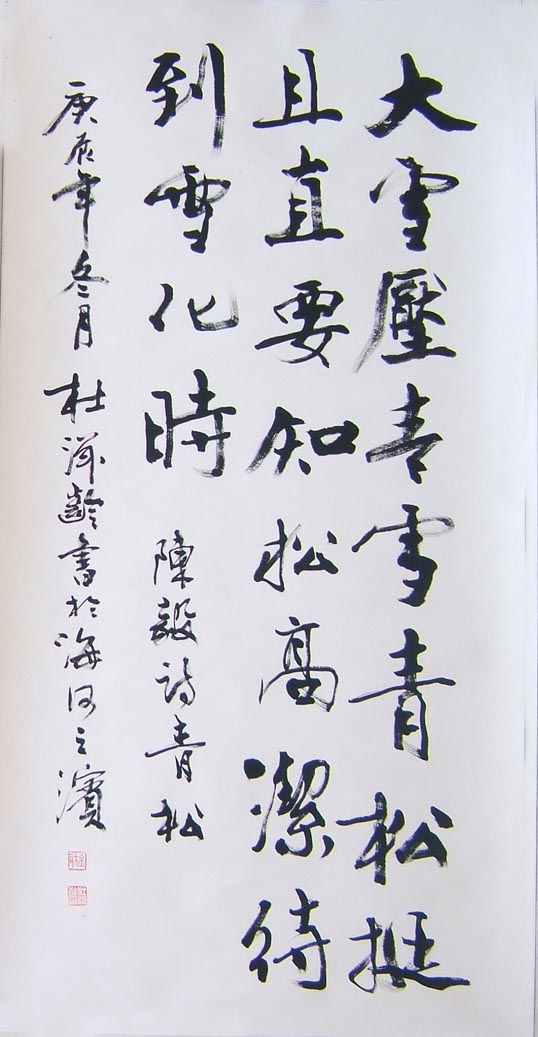 大雪壓青雪青松挺
且直要知松高潔待
到雪化時 陳毅詩青松
庚辰年冬月 杜 齡書於海河之濱